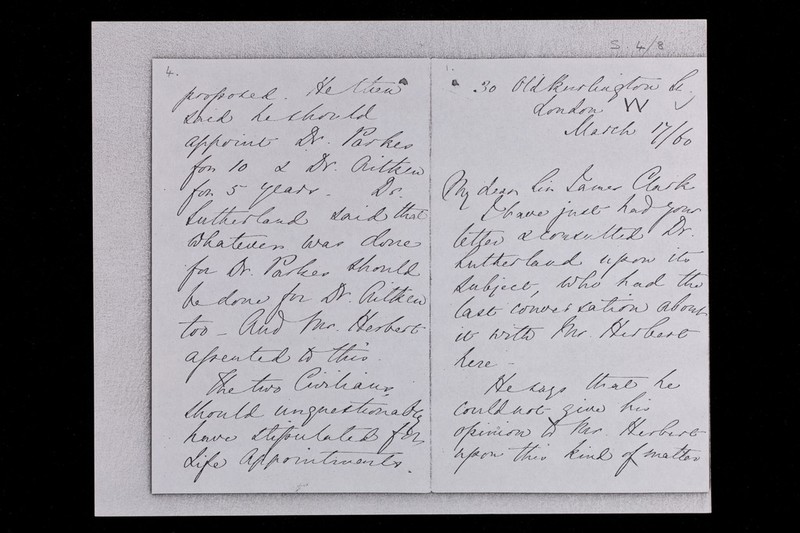 S. 4/8
4.
proposed. He then
said he should
appoint Dr. Parkes
for 10 & Dr. Aitken
for 5 years - Dr.
Sutherland said that
whatever was done
for Dr. Parkes should
be done for Dr. Aitken
too - And Mr. Herbert
assented to this.
The two Civilians
should unquestionably
have stipulated for
Life Appointments.
1.
30 Old Burlington St.
London W
March 17/60
My dear Sir James Clark
I have just had your
letter & consulted Dr.
Sutherland upon its
subject, who had the
last conversation about
it with Mr. Herbert
here -
He says that he
could not give his
opinion to Mr. Herbert
upon this kind of matter